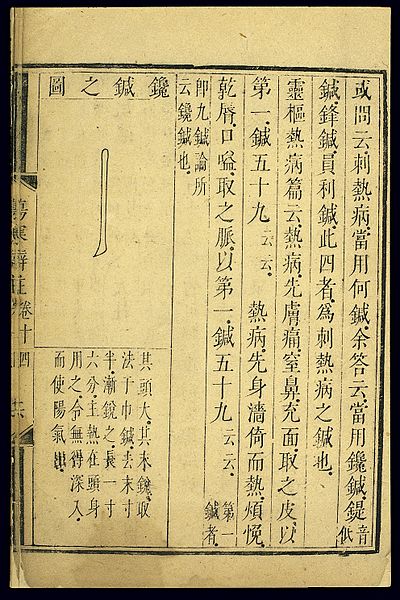 或問云刺熱病當用何鍼余答云當用鑱鍼鍉音低
鍼鋒鍼員利鍼此四者為刺熱病之鍼也
靈樞熱病篇云熱病先膚痛窒鼻充面取之皮以
第一鍼五十九云云 熱病先身濇倚而熱煩悗
乾脣口嗌取之脈以第一鍼五十九云云 第一鍼者
即九鍼論所
云鑱鍼也
鑱鍼之圖
其頭大其末銳取
法于巾鍼去末寸
半漸銳之長一寸
六分主熱在頭身
用之令無得深入
而使陽氣出
註卷十四